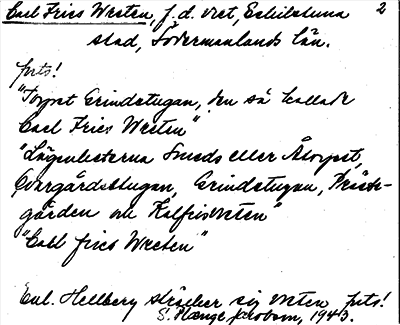 Carl Fries Westen, f.d. vret, Eskilstuna 2
stad, Södermanlands län.
forts!
"Torpet Grindstugan, den så kallade
Carl Fries Westen"
"Lägenheterna Smeds eller Åtorpet,
Övergårdsstugan, Grindstugan, Präst-
gården och Kalfrisvreten"
"Carl fries Wreten"
Enl. Hellberg sträcker sig vreten forts!
S. Plænge Jacobson, 1943.